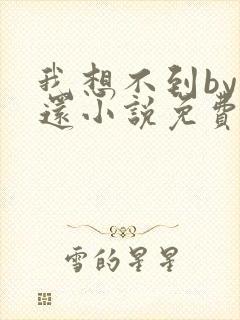 我想不到by
還小說免費
雪的星星